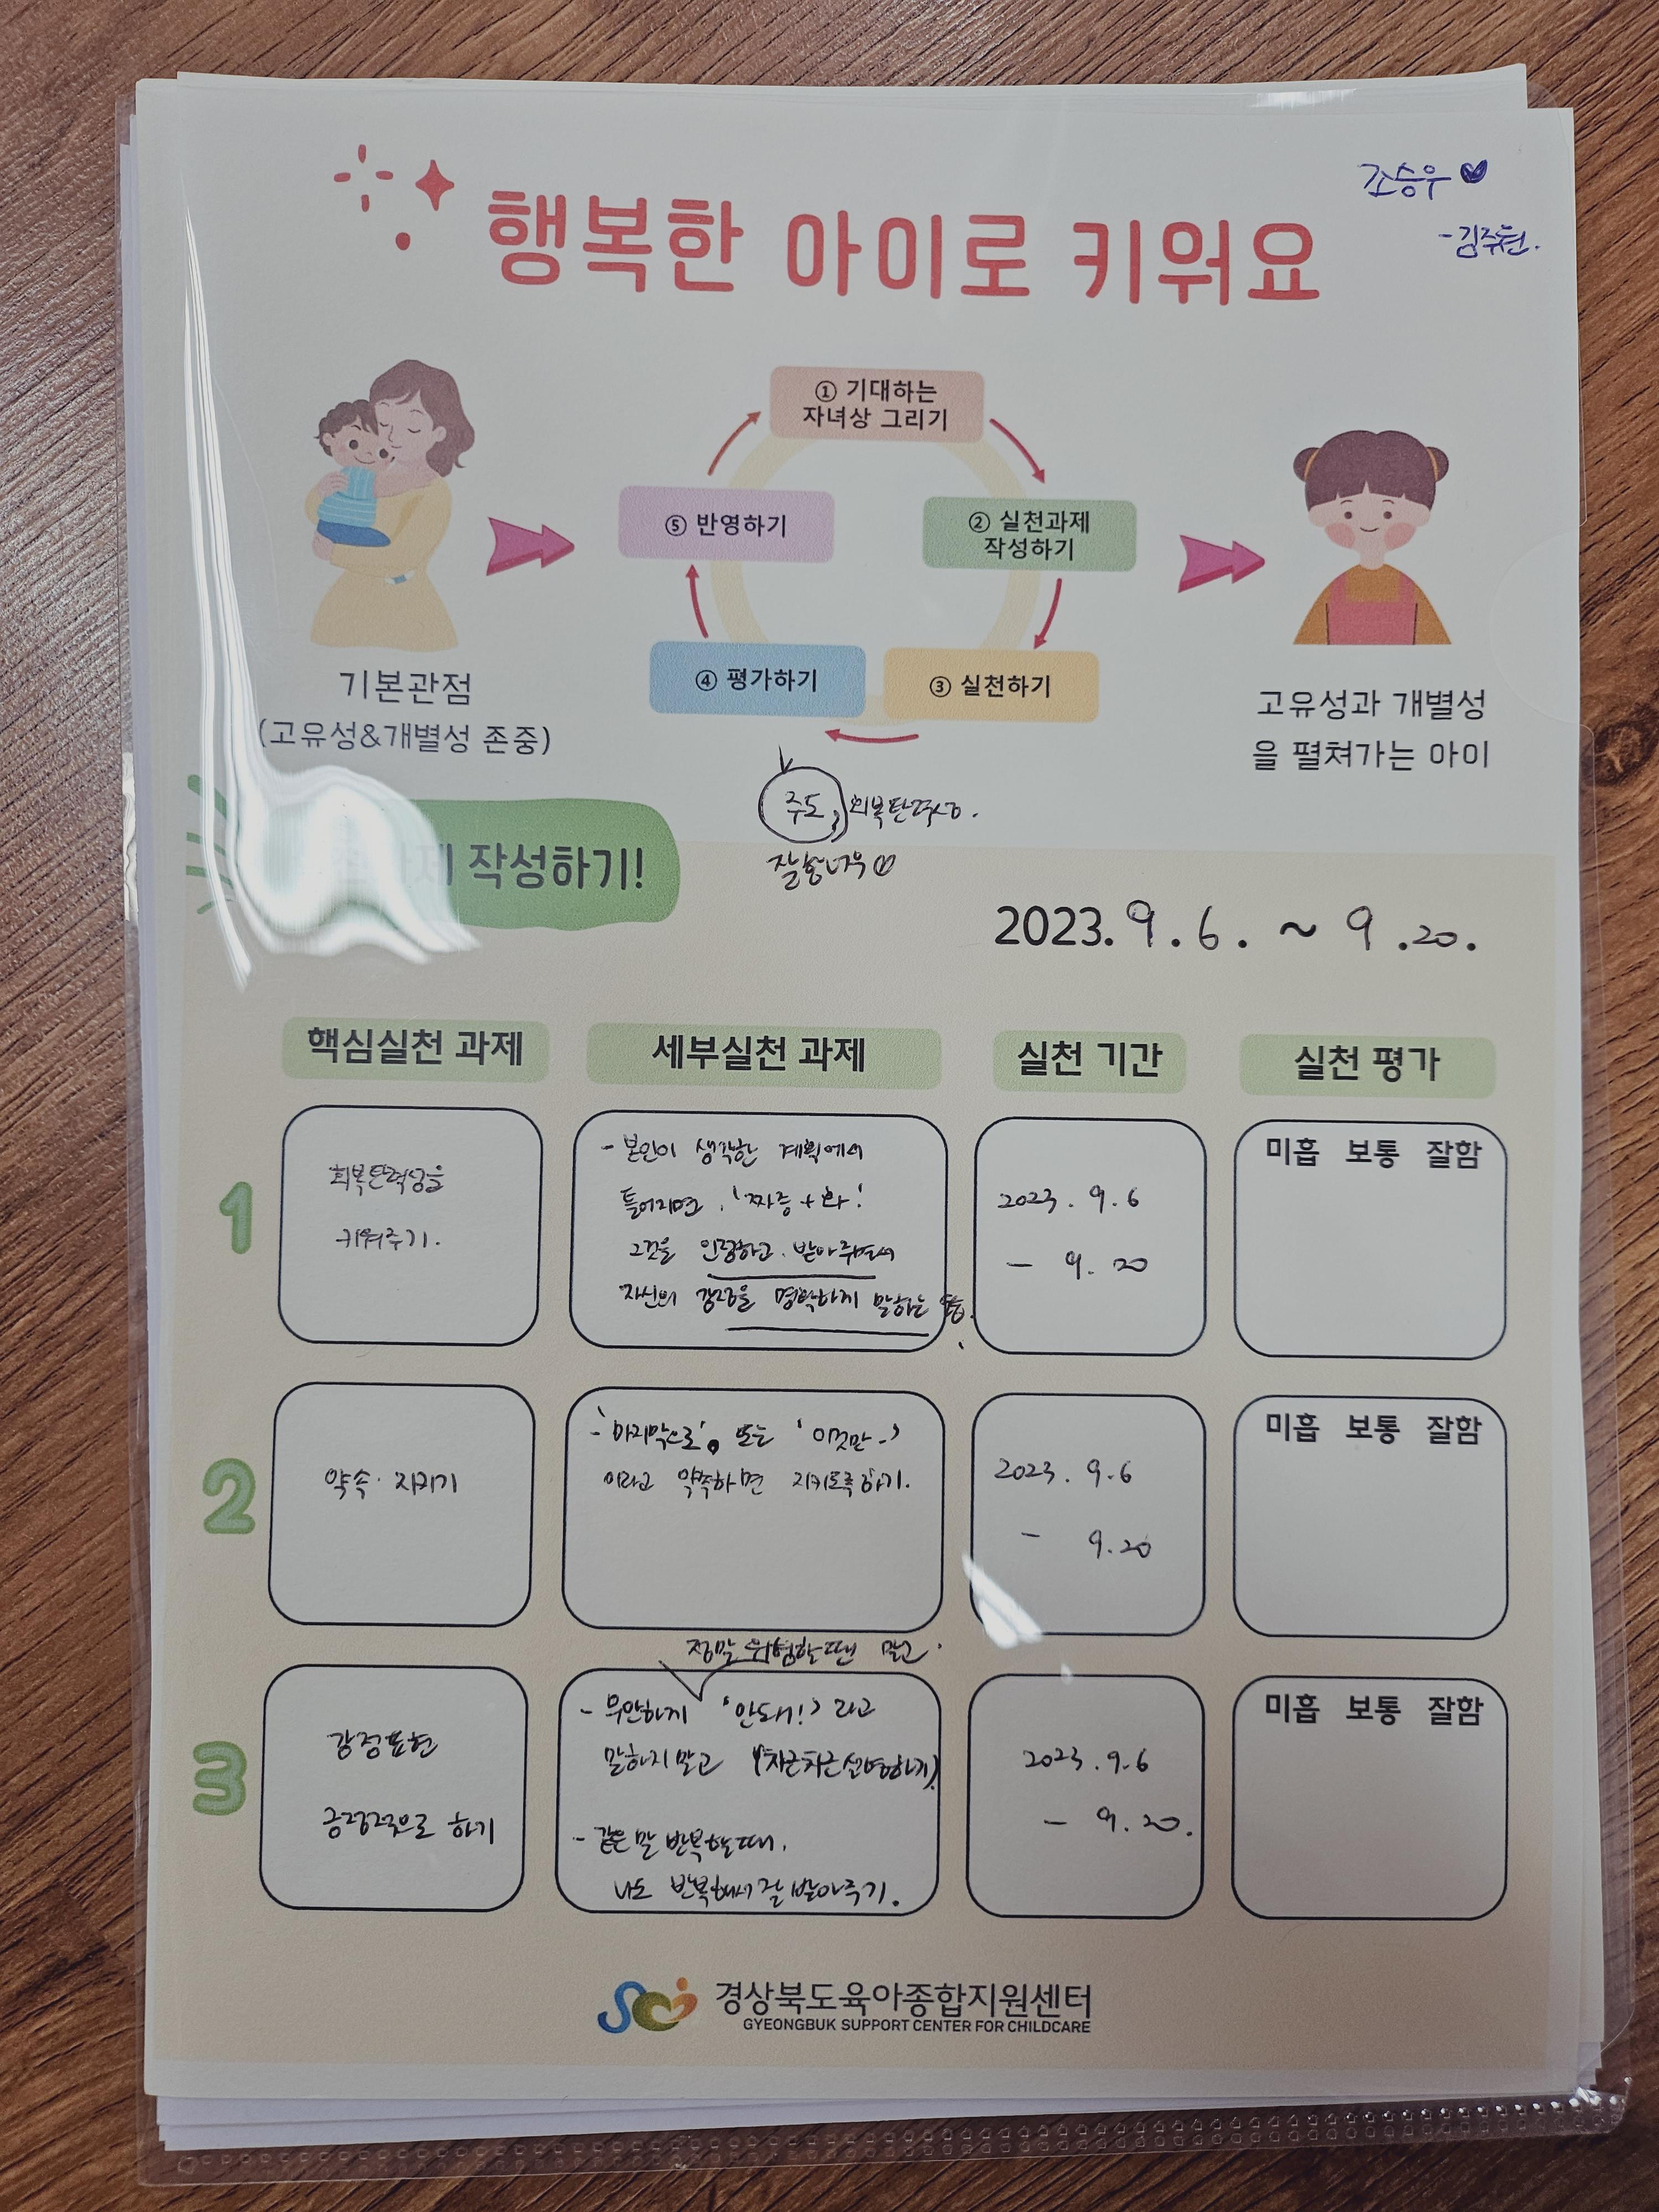 조승우
-김주현.
행복한 아이로 키워요
① 기대하는
자녀상 그리기
② 실천과제
작성하기
③ 실천하기
④ 평가하기
⑤ 반영하기
기본관점
(고유성&개별성 존중)
고유성과 개별성
을 펼쳐가는 아이
주도, 회복탄력성.
작성하기!
2023. 9. 6. ~ 9. 20.
핵심실천 과제
세부실천 과제
실천 기간
실천 평가
1
회복탄력성을
키워주기.
- 본인이 생각한 계획에서
틀어지면, '짜증+화!'
그것을 인정하고. 받아주면서
자신의 감정을 명확하게 말하는
2023. 9. 6
- 9. 20
미흡 보통 잘함
2
약속 지키기
- '마지막으로', 또는 '이것만-'
이라고 약속하면 지키도록하기.
2023. 9. 6
- 9. 20
미흡 보통 잘함
3
감정표현
긍정적으로 하기
정말 위험할땐 말고.
- 무안하게 '안돼!' 라고
말하지말고 (차근차근설명하기)
- 같은 말 반복할때,
나도 반복해서 잘 받아주기.
2023. 9. 6
- 9. 20.
미흡 보통 잘함
경상북도육아종합지원센터
GYEONGBUK SUPPORT CENTER FOR CHILDCARE